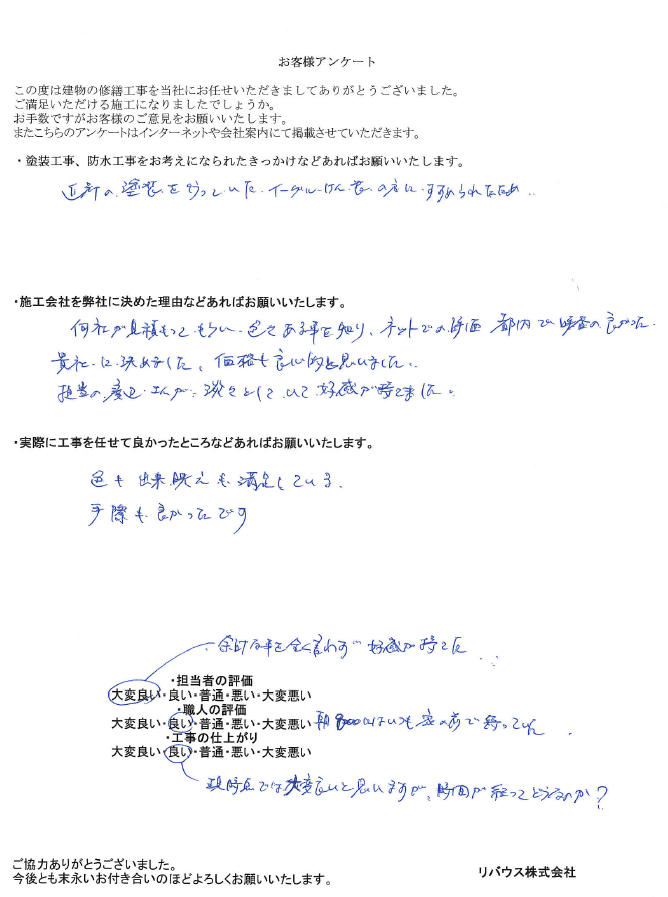 お客様アンケート
この度は建物の修繕工事を当社にお任せいただきましてありがとうございました。
ご満足いただける施工になりましたでしょうか。
お手数ですがお客様のご意見をお願いいたします。
またこちらのアンケートはインターネットや会社案内にて掲載させていただきます。
・塗装工事、防水工事をお考えになられたきっかけなどあればお願いいたします。
近所の塗装を行っていたイーグルけん装の方にすすめられたため
・施工会社を弊社に決めた理由などあればお願いいたします。
何社か見積もってもらい色々ある事を知り、ネットでの評価 都内で の良かった
貴社に決めました。価格も良心的と思いました。
担当の渡辺さんが淡々としていて好感が持てました。
・実際に工事を任せて良かったところなどあればお願いいたします。
色も出来映えも満足している。
手際も良かったです
余計な事を全く言わず好感が持てた
・担当者の評価
大変良い・良い・普通・悪い・大変悪い
・職人の評価
大変良い・良い・普通・悪い・大変悪い 朝 にはいつも家の前で待っていた
・工事の仕上がり
大変良い・良い・普通・悪い・大変悪い
現時点では大変良いと思いますが、時間が経ってどうなるのか?
ご協力ありがとうございました。
今後とも末永いお付き合いのほどよろしくお願いいたします。
リバウス株式会社